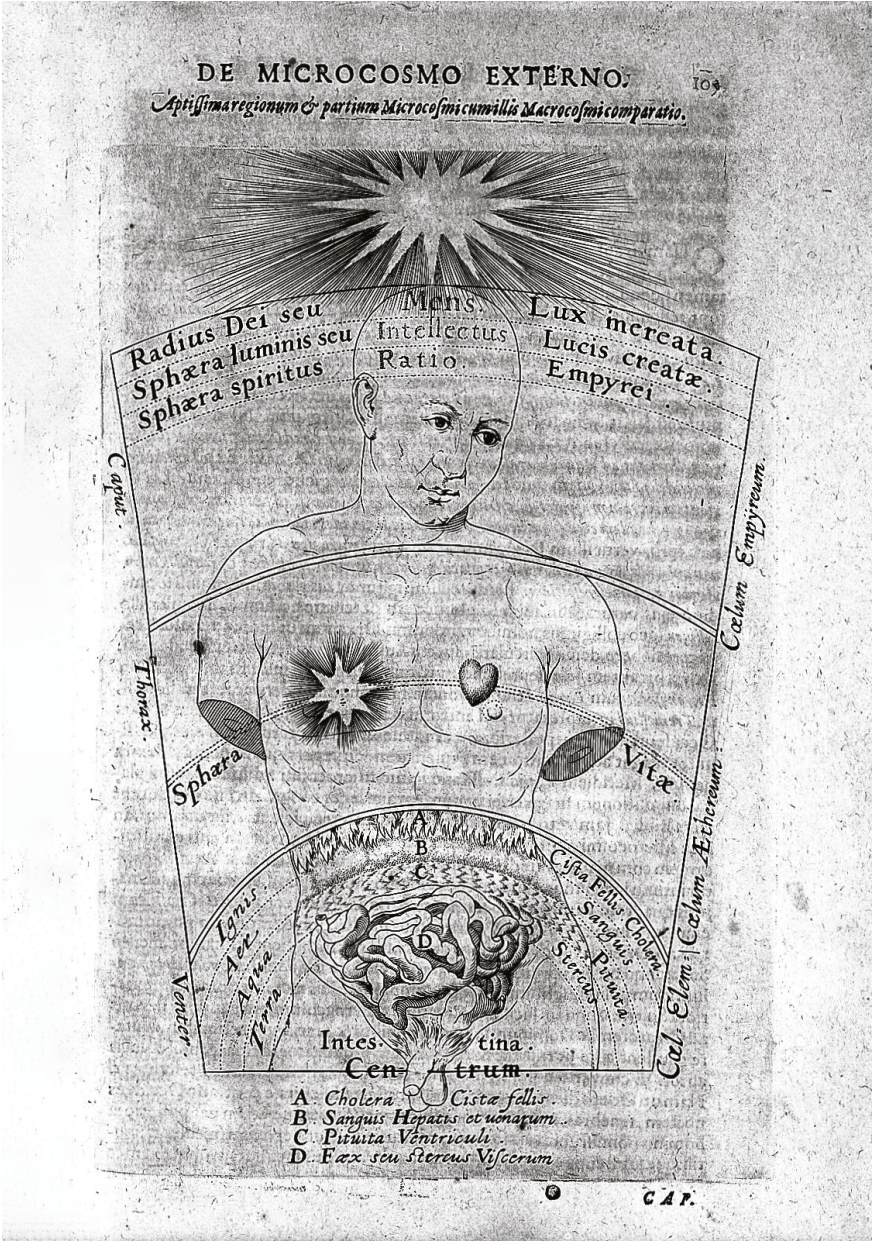 DE MICROCOSMO EXTERNO.
105
Aptissima regionum & partium Microcosmi cum illis Macrocosmi comparatio.
Radius Dei seu Mens. Lux increata.
Sphæra luminis seu Intellectus Lucis creatæ.
Sphæra spiritus Ratio. Empyrei.
Caput.
Cœlum Empÿreum.
Thorax.
Sphæra Vitæ
Cœlum Æthereum
A
B
C
D
Ignis
Aer
Aqua
Terra
Cista Fellis Cholera
Sanguis.
Pituita.
Stercus
Venter.
Cœl. Elem
Intes- tina.
Cen- trum.
A. Cholera Cistæ fellis.
B. Sanguis Hepatis et uenarum.
C. Pituita Ventriculi.
D. Fæx seu stercus Viscerum
CAP.